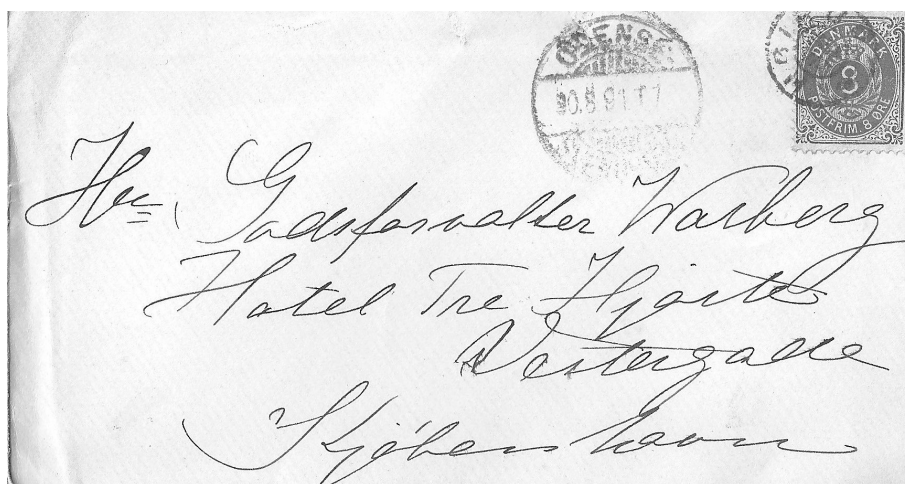 ODENSE
30.8 91 T7
DANMARK
8
POSTFRIM 8 ØRE
Hr.
Godsforvalter Warberg
Hotel Tre Hjorte
Vestergade
Kjøbenhavn